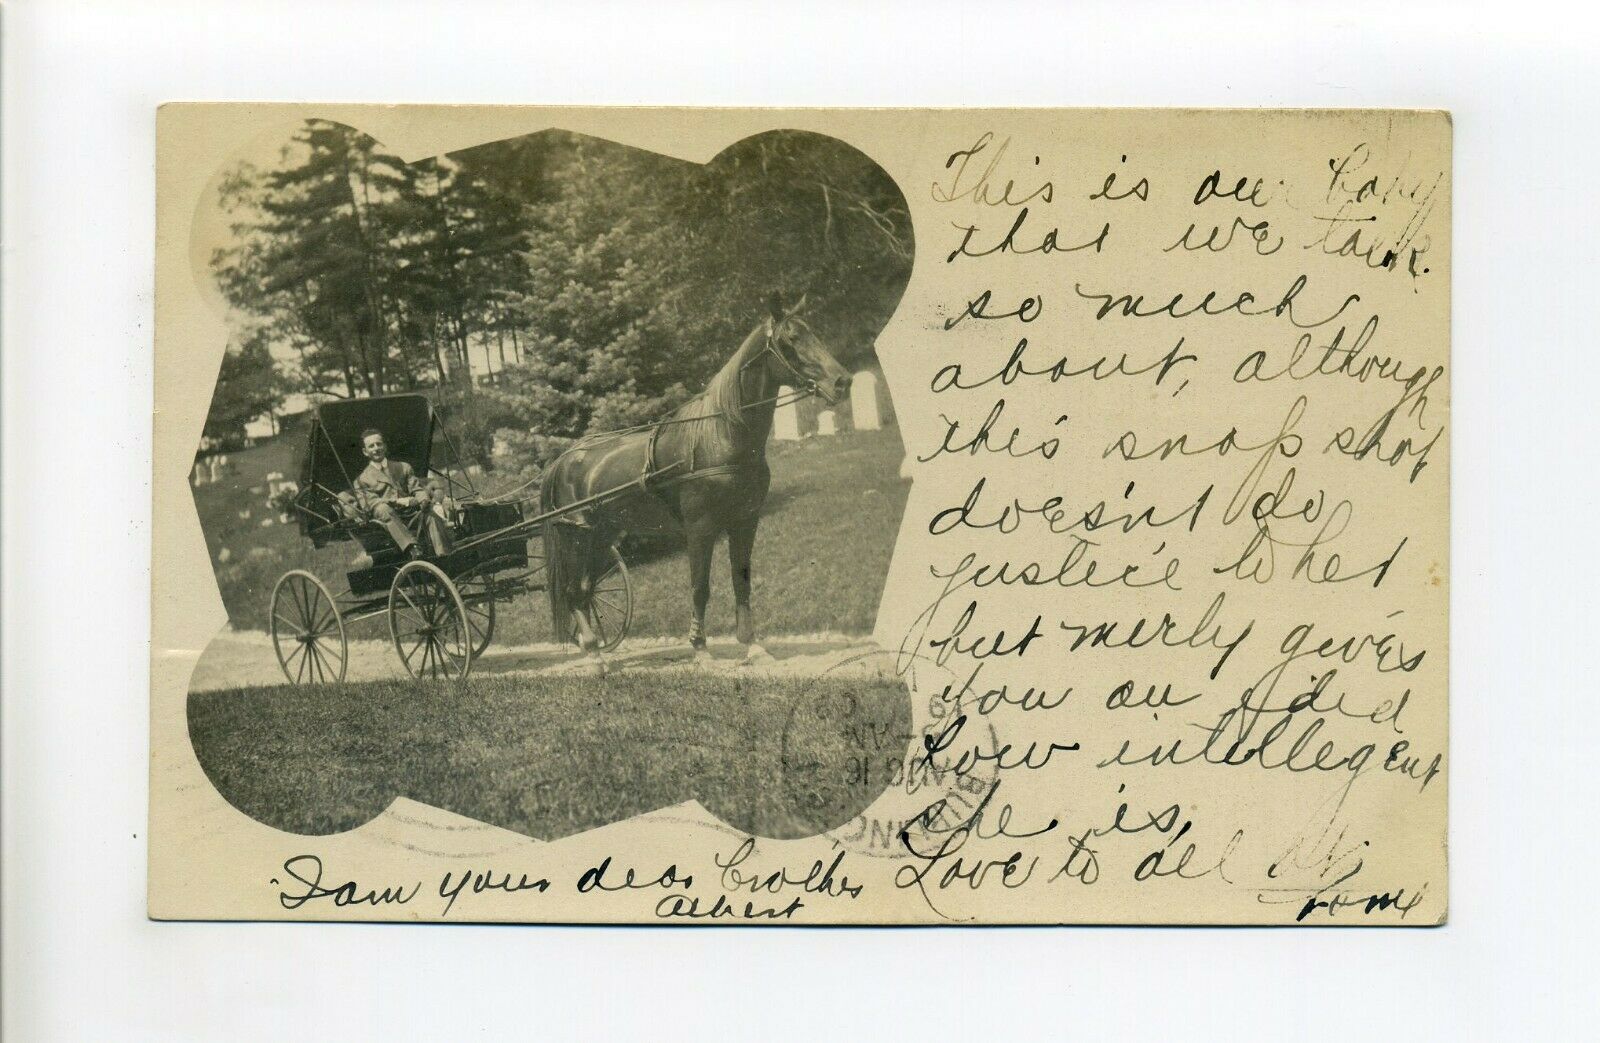 This is our baby
that we talk
so much
about, although
this snap shot
doesn't do
justice to her
but merly gives
you an idea
how intellegent
she is.
Love to all
home
I am your dear brother
Albert
AUG 16